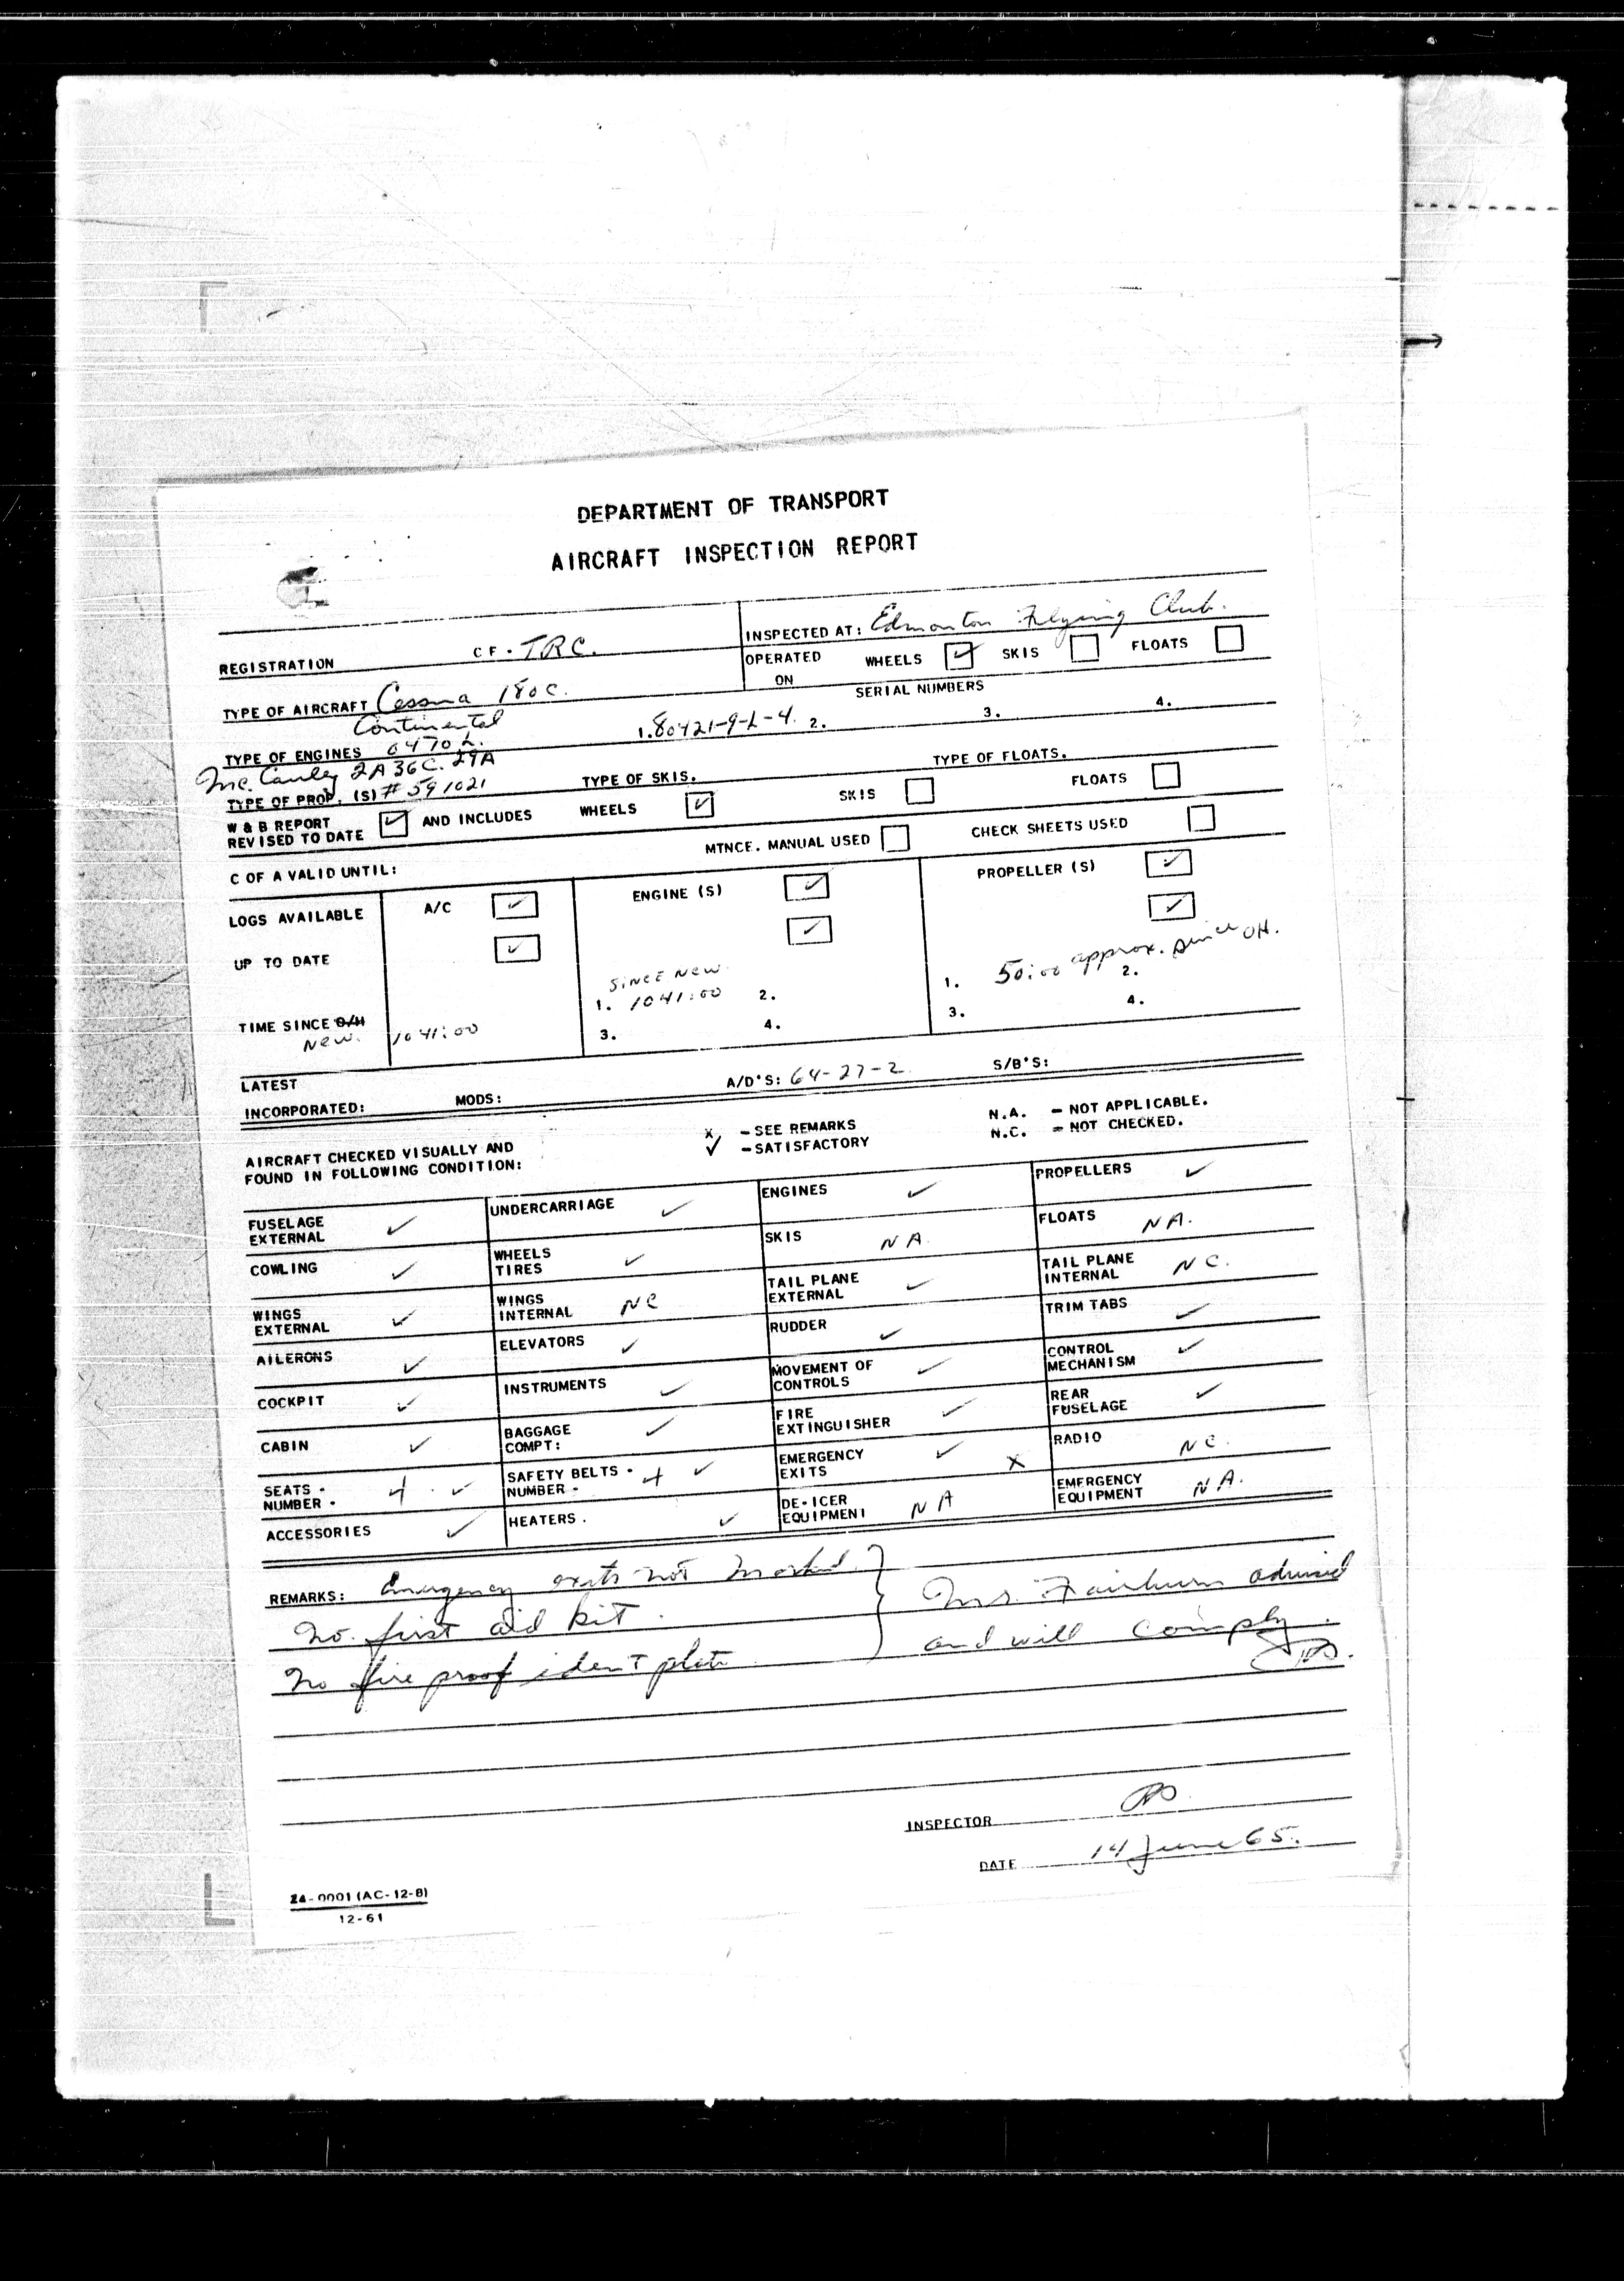 DEPARTMENT OF TRANSPORT
AIRCRAFT INSPECTION REPORT
REGISTRATION CF-TRC. INSPECTED AT: Edmonton Flying Club.
OPERATED ON WHEELS ✓ SKIS FLOATS
TYPE OF AIRCRAFT Cessna 180C. SERIAL NUMBERS
Continental
TYPE OF ENGINES O470L. 1. 80421-9-L-4. 2. 3. 4.
Mc.Cauley 2A36C.29A
TYPE OF PROP. (S) # 591021 TYPE OF SKIS. TYPE OF FLOATS.
W & B REPORT
REVISED TO DATE ✓ AND INCLUDES WHEELS ✓ SKIS FLOATS
C OF A VALID UNTIL: MTNCE. MANUAL USED CHECK SHEETS USED
LOGS AVAILABLE A/C ✓ ENGINE (S) ✓ PROPELLER (S) ✓
UP TO DATE ✓ ✓ ✓
SINCE NEW.
1. 1041:00 2. 1. 50:00 approx. since OH. 2.
TIME SINCE O/H 1041:00 3. 4. 3. 4.
New.
LATEST
INCORPORATED: MODS: A/D'S: 64-27-2. S/B'S:
AIRCRAFT CHECKED VISUALLY AND
FOUND IN FOLLOWING CONDITION:
x - SEE REMARKS N.A. - NOT APPLICABLE.
✓ - SATISFACTORY N.C. - NOT CHECKED.
FUSELAGE EXTERNAL ✓ UNDERCARRIAGE ✓ ENGINES ✓ PROPELLERS ✓
COWLING ✓ WHEELS TIRES ✓ SKIS NA. FLOATS NA.
WINGS EXTERNAL ✓ WINGS INTERNAL NC TAIL PLANE EXTERNAL ✓ TAIL PLANE INTERNAL NC.
AILERONS ✓ ELEVATORS ✓ RUDDER ✓ TRIM TABS ✓
COCKPIT ✓ INSTRUMENTS ✓ MOVEMENT OF CONTROLS ✓ CONTROL MECHANISM ✓
CABIN ✓ BAGGAGE COMPT: ✓ FIRE EXTINGUISHER ✓ REAR FUSELAGE ✓
SEATS - NUMBER - 4 ✓ SAFETY BELTS - NUMBER - 4 ✓ EMERGENCY EXITS ✓ X RADIO NC.
ACCESSORIES ✓ HEATERS. ✓ DE-ICER EQUIPMENT NA EMERGENCY EQUIPMENT NA.
REMARKS: Emergency exits not marked. } Mr. Fairburn advised
No. first aid kit. and will comply.
No fire proof ident plate
INSPECTOR
DATE 14 June 65.
24-0001 (AC-12-8)
12-61